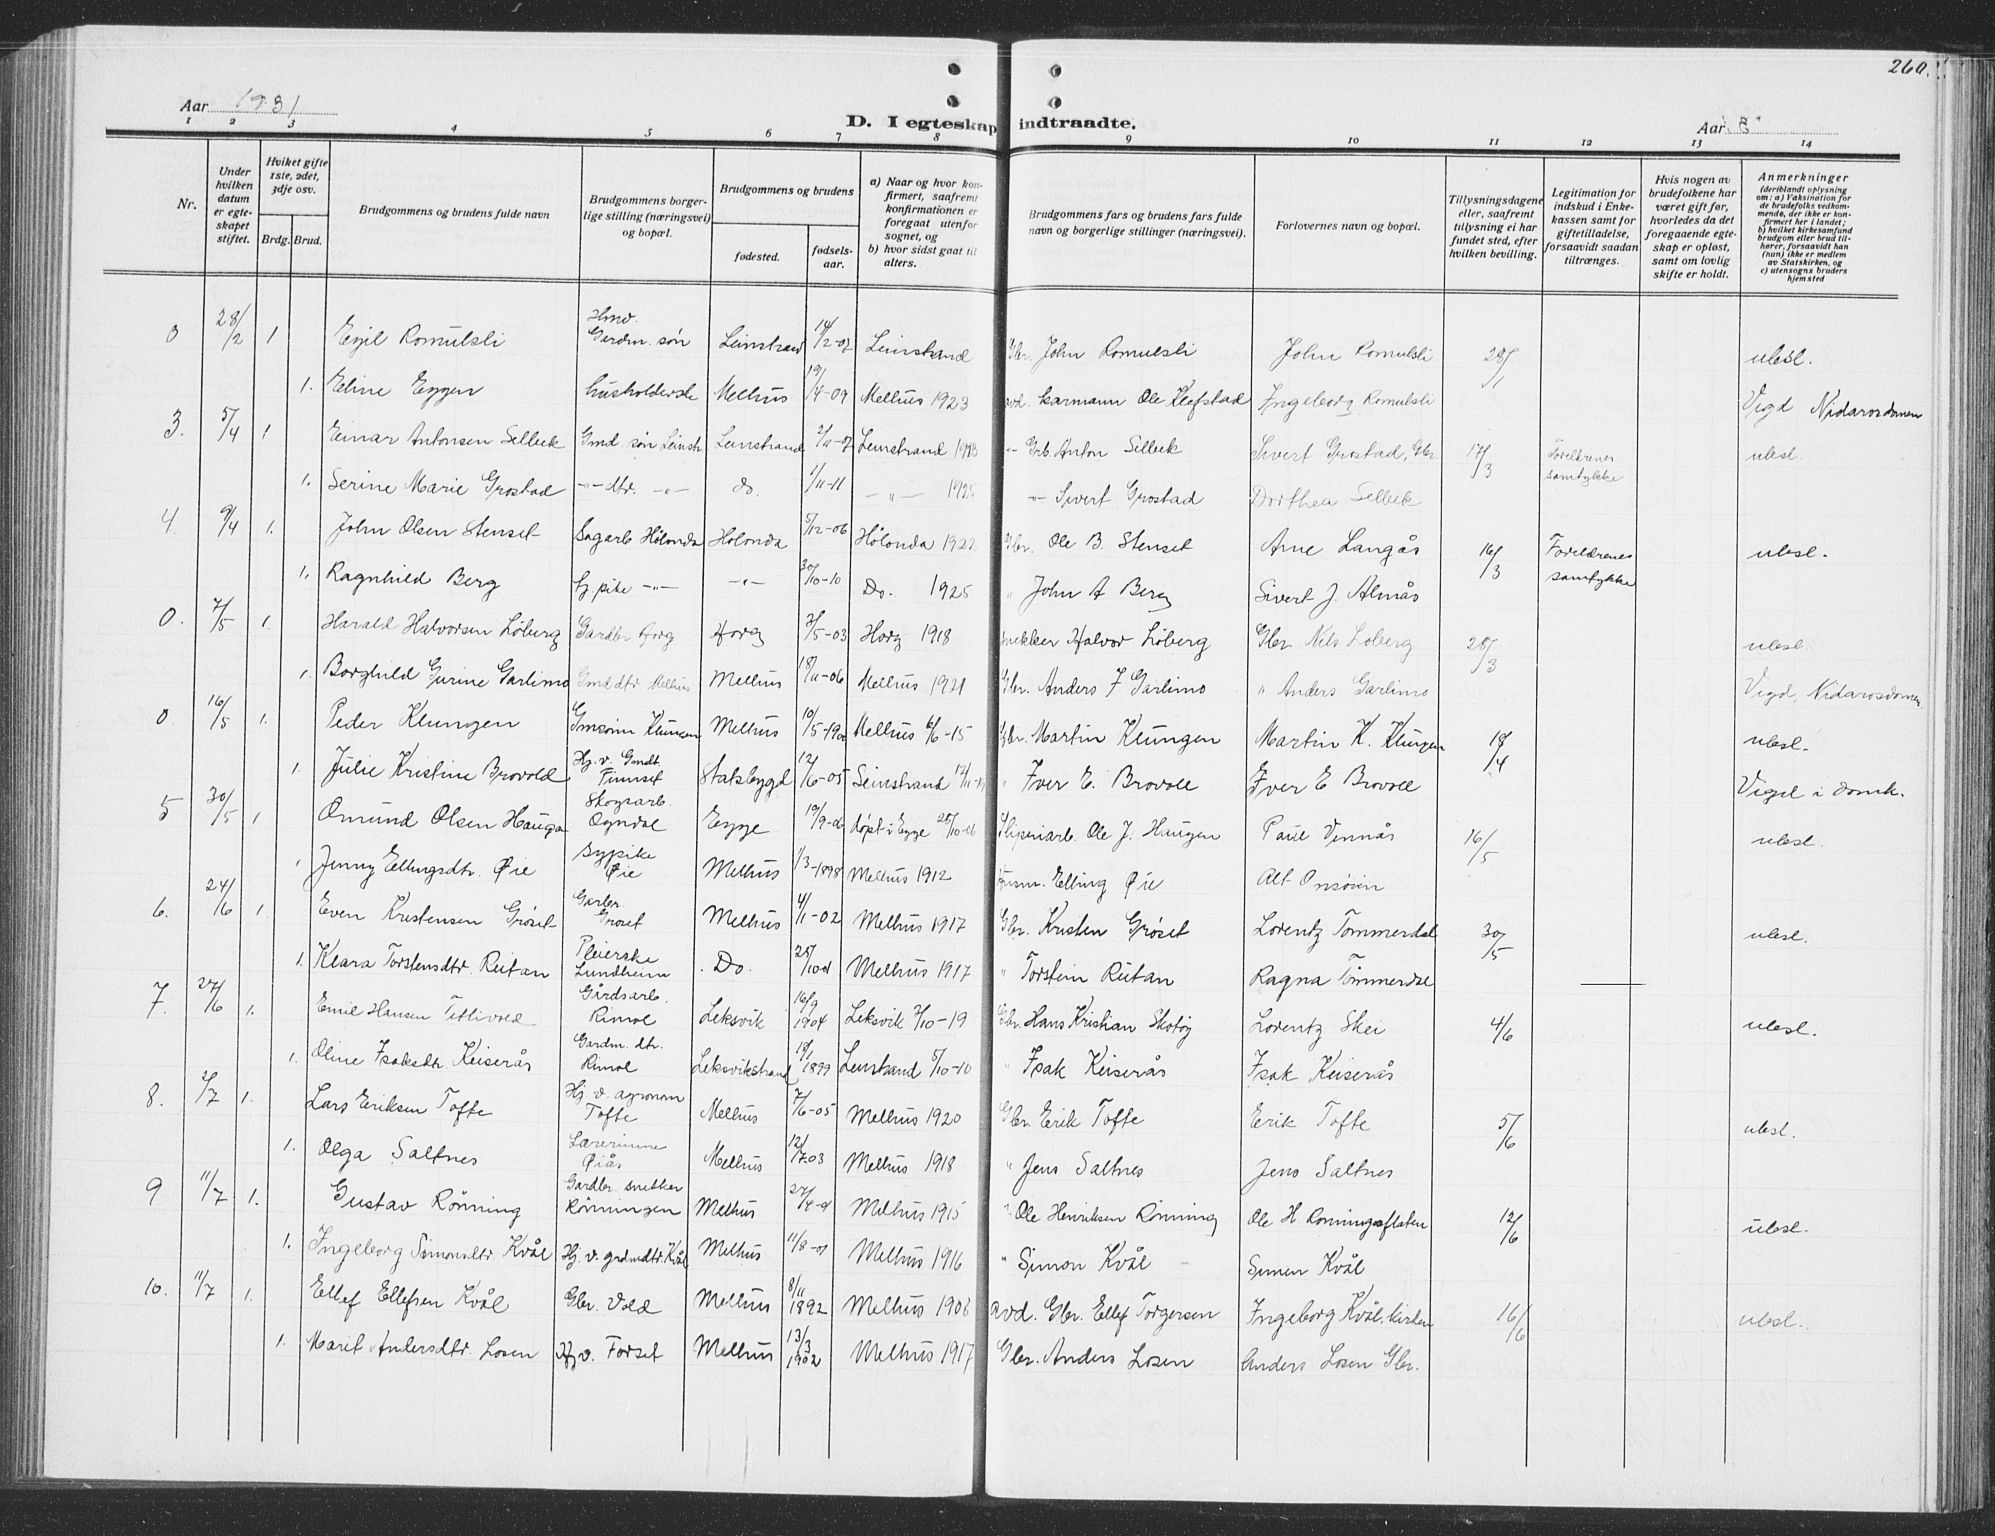 260.
Aar 1931
D. I egteskap indtraadte.
Aar
1 2 3 4 5 6 7 8 9 10 11 12 13 14
Nr.
Under hvilken datum er egteskapet stiftet.
Hvilket gifte 1ste, 2det, 3dje osv.
Brdg. Brud.
Brudgommens og brudens fulde navn
Brudgommens borgerlige stilling (næringsvei) og bopæl.
Brudgommens og brudens
fødested. fødselsaar.
a) Naar og hvor konfirmert, saafremt konfirmationen er foregaat utenfor sognet, og
b) hvor sidst gaat til alters.
Brudgommens fars og brudens fars fulde navn og borgerlige stillinger (næringsvei).
Forlovernes navn og bopæl.
Tillysningsdagene eller, saafremt tillysning ei har fundet sted, efter hvilken bevilling.
Legitimation for indskud i Enkekassen samt for giftetilladelse, forsaavidt saadan tiltrænges.
Hvis nogen av brudefolkene har været gift før, hvorledes da det foregaaende egteskap er opløst, samt om lovlig skifte er holdt.
Anmerkninger
(deriblandt oplysning om: a) Vaksination for de brudefolks vedkommende, der ikke er konfirmert her i landet; b) hvilket kirkesamfund brudgom eller brud tilhører, forsaavidt han (hun) ikke er medlem av Statskirken, og c) utensogns bruders hjemsted
0 28/2 1 Egil Romulsli Hmd. Gardm. søn Leinstrand 14/2-07 Leinstrand Gbr. John Romulsli John Romulsli 28/1 ubesl.
1. Eline Eggen husholderske Melhus 19/4-09 Melhus 1923 Ole Klefstad Ingeborg Romulsli Vigd Nidarosdomen
3. 5/4 1. Einar Antonsen Selbek Gmd. søn Leinstr Leinstrand 2/11-07 Leinstrand Grb. Anton Selbek Sivert Grostad, Gbr. 17/3 Foreldrenes samtykke ubesl.
1. Serine Marie Grostad -"- dtr. -"- do. 1/11-11 -"- 1925 -"- Sivert Grostad Dorthea Selbek
4. 9/4 1. John Olsen Stenset Sagarb Hølonda Hølonda 5/12-06 Hølonda 1922 Gbr. Ole B. Stenset Arne Langås 16/3 Foreldrenes samtykke ubesl.
1. Ragnhild Berg Hj. pike -"- -"- 30/10-10 Do. 1925 " John A Berg Sivert J. Almås
0. 7/5 1. Harald Halvorsen Løberg Gardbr Horg Horg 2/5-03 Horg 1918 snekker Halvor Løberg Gbr. Nils Løberg 28/3 ubesl.
1. Borghild Gurine Garlimo Gmd dtr Melhus Melhus 18/11-06 Melhus 1921 Gbr. Anders F Garlimo " Anders Garlimo Vigd, Nidarosdomen
0. 16/5 1. Peder Klungen Gmsønn Klungen Melhus 10/5-1900 Melhus 6/6-15 Gbr. Martin Klungen Martin K. Klungen 18/4 ubesl.
1. Julie Kristine Brovold Hj. v. Gmdt. Finnset Statsbygd 12/6-05 Leinstrand " Iver E. Brovoll Iver E Brovoll Vigd i domk.
5 30/5 1 Omund Olsen Hauga Skogsarb. Ogndal Egge 19/9-06 døpt i Egge Slipniarb. Ole J. Haugen Paul Vennås 16/5 ubesl.
1 Jenny Ellingsdtr. Øie Sypike Øie Melhus 1/3-1898 Melhus 1912 Elling Øie Alf Onsøien
6. 24/6 1. Even Kristensen Grøset Garbr. Grøset Melhus 4/1-02 Melhus 1917 Gbr. Kristen Grøset Lorentz Tømmerdal 30/5 ubesl.
1. Klara Torstensdtr. Reitan Pleierske Lundheim Do. Melhus 1917 " Torstein Reitan Ragna Tømmerdal
7. 27/6 1. Emil Hansen Tetlivold Gårdsarb. Rimol Leksvik 16/9 1904 Leksvik 2/10-19 Gbr. Hans Kristian Skotøy Lorentz Skei 4/6 ubesl.
1. Oline Isaksdtr. Keiserås Gardm. dtr. Rimol Leksvikstrand 1899 Leinstrand 5/10-10 " Isak Keiserås Isak Keiserås
8. 2/7 1. Lars Eriksen Tofte Hj. v. agronom Tofte Melhus 7/6-05 Melhus 1920 Gbr. Erik Tofte Erik Tofte 5/6 ubesl.
1. Olga Saltnes Lærerinne Øiås Melhus 12/7-03 Melhus 1918 " Jens Saltnes Jens Saltnes
9 11/7 1. Gustav Rønning Gardbr. snekker Rønningen Melhus 27/4-01 Melhus 1915 " Ole Henriksen Rønning Ole H Rønningsflaten 12/6 ubesl.
1. Ingeborg Simonsdtr. Kvål Hj. v. grdmdtr. Kvål Melhus 11/8-01 Melhus 1916 " Simon Kvål Simen Kvål
10. 11/7 1. Ellef Ellefsen Kvål Gbr. Vold Melhus 8/11 1892 Melhus 1908 avd. Gbr. Ellef Torgersen Ingeborg Kvål, kirken 16/6 ubesl.
1. Marit Andersdtr. Losen Hj. v. Forset Melhus 13/3 1902 Melhus 1917 Gbr. Anders Losen Anders Losen Gbr.